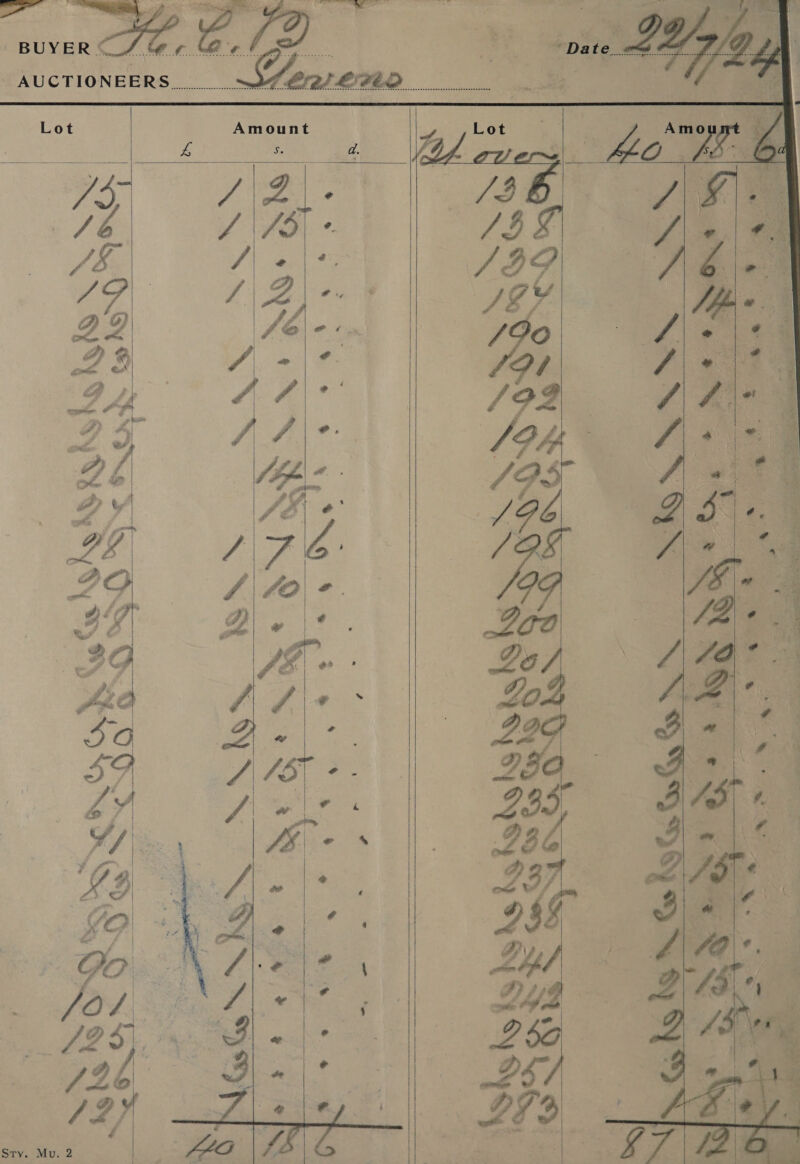 BUYER H. C. 12
Date 22/7/24
AUCTIONEERS Stevens
Lot Amount
£ s. d.
15 1 2 .
16 1 15 .
18 1 . .
19 1 2 .
22 16 .
23 1 . .
24 1 1 .
25 1 1 .
26 14 .
27 18 .
28 1 7 6
29 1 10 .
38 2 . .
39 18 .
40 1 1 .
50 2 . .
59 1 15 .
67 1 . .
71 18 .
83 1 . .
89 2 . .
90 1 . .
101 1 . .
125 3 . .
126 3 . .
127 7 . .
40 18 6
Lot Amount
over 40 18 6
136 1 8 .
138 1 . .
139 1 6 .
187 14 .
190 1 . .
191 1 . .
192 1 1 .
194 1 . .
195 1 . .
196 2 5 .
198 1 . .
199 18 .
200 12 .
201 1 10 .
202 1 2 .
229 3 . .
230 3 . .
235 3 15 .
236 3 . .
237 2 15 .
238 3 . .
241 1 10 .
242 2 15 .
250 2 15 .
257 3 . .
273 1 8 .
87 12 6
Stv. Mu. 2